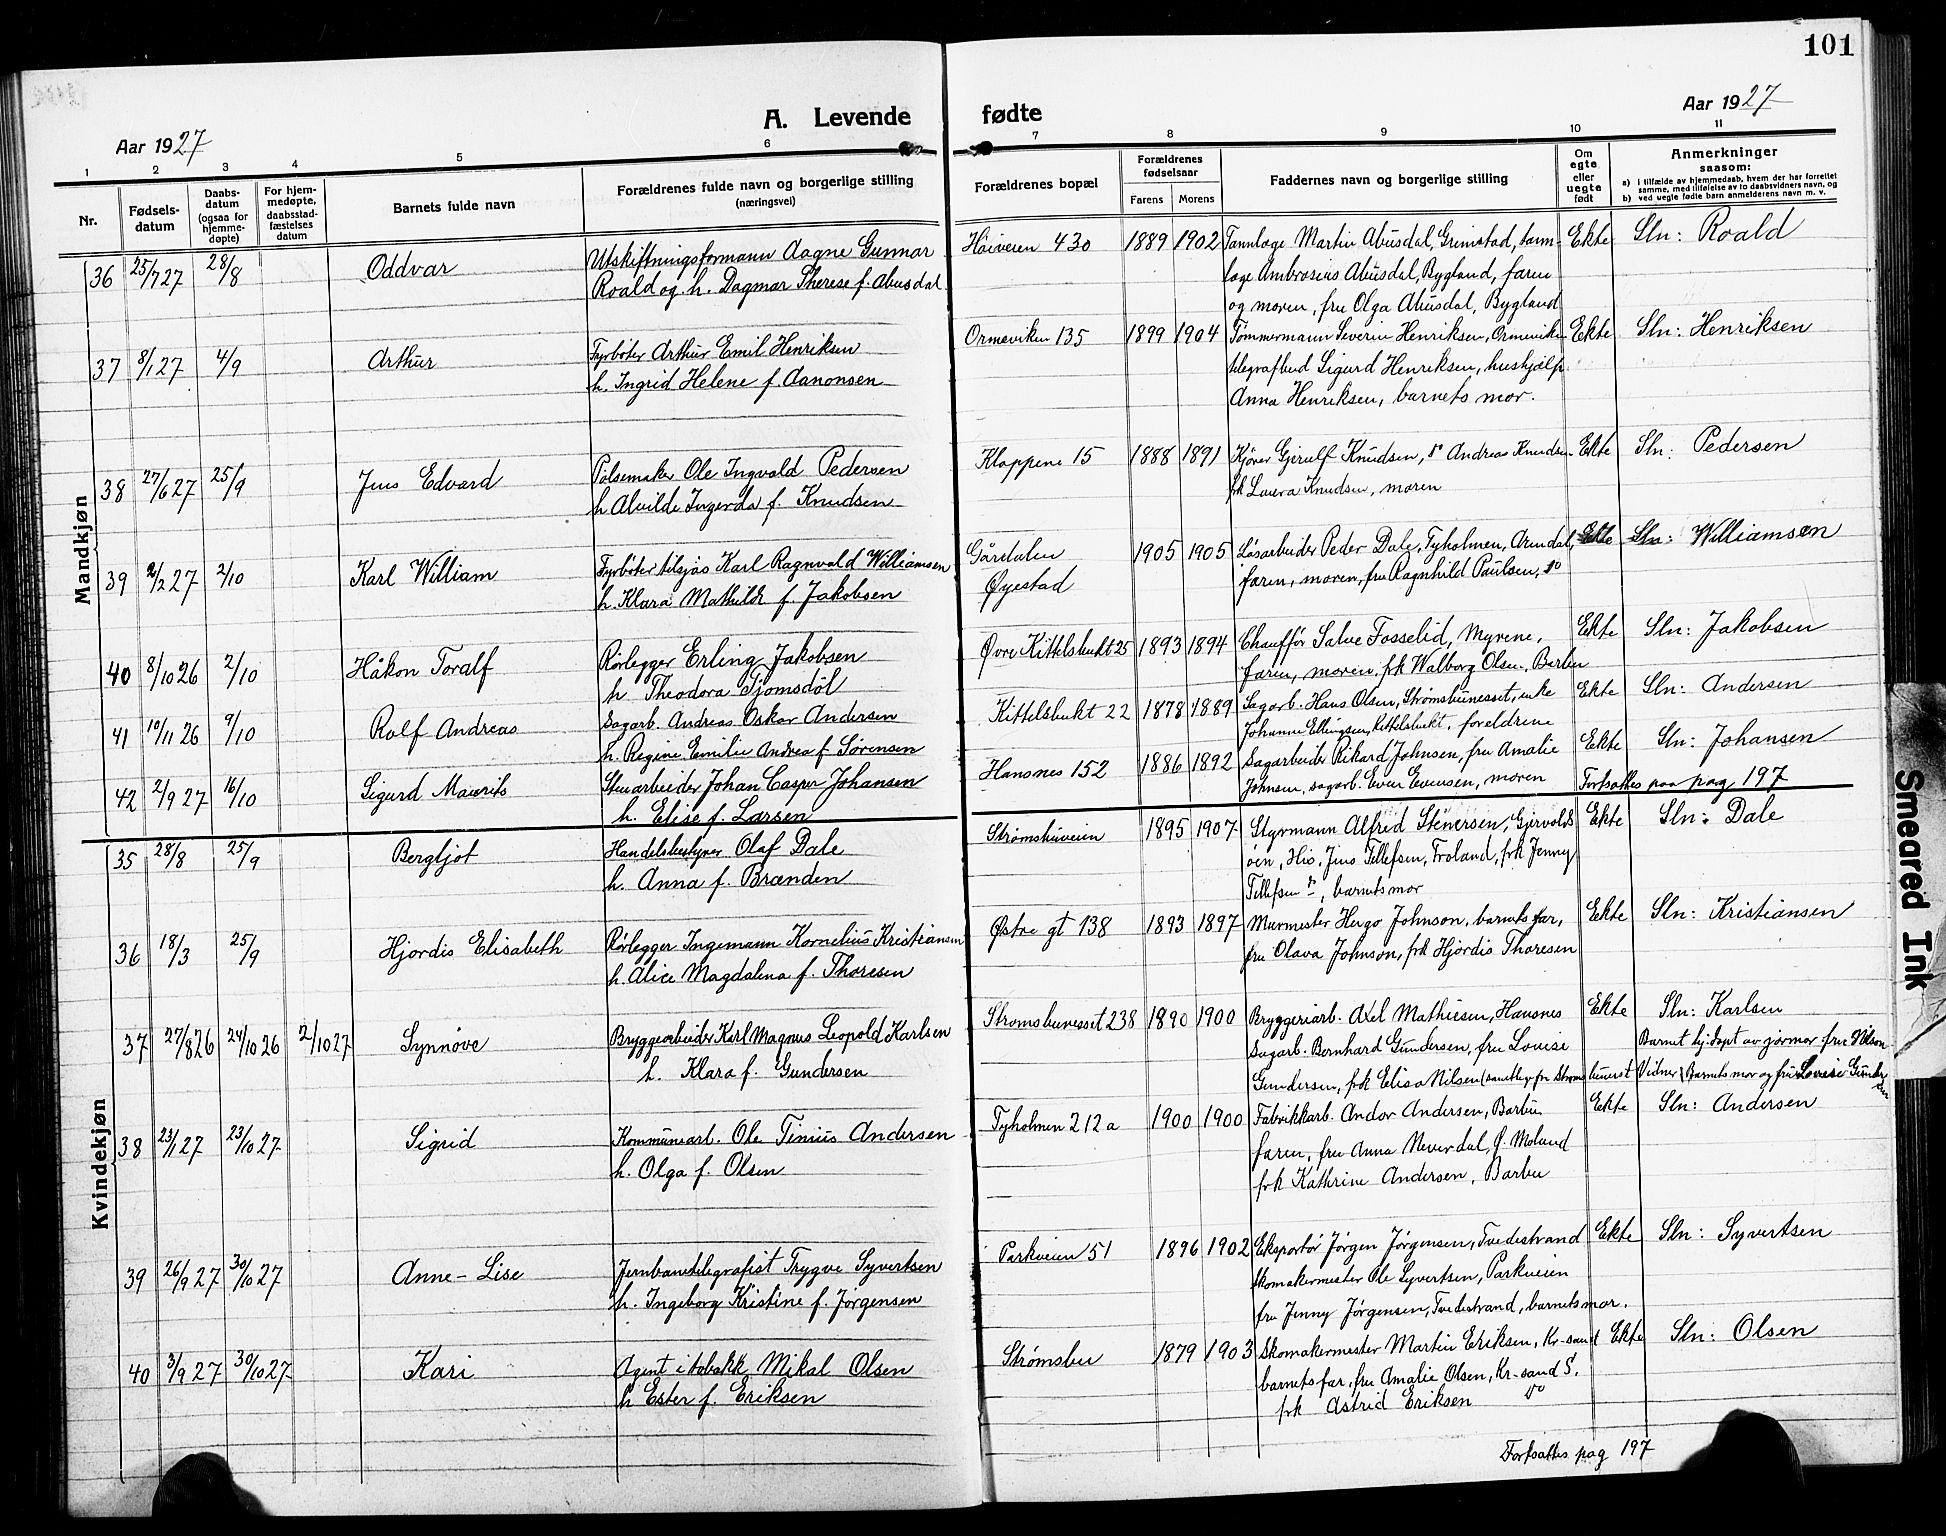 101
A. Levende fødte
Aar 1927
Aar 1927
1 2 3 4 5 6 7 8 9 10 11
Nr.
Fødsels-
datum
Daabs-
datum
(ogsaa for
hjemme-
døpte)
For hjem-
medøpte,
daabsstad-
fæstelses
datum
Barnets fulde navn
Forældrenes fulde navn og borgerlige stilling
(næringsvei)
Forældrenes bopæl
Forældrenes
fødselsaar
Farens Morens
Faddernes navn og borgerlige stilling
Om
egte
eller
uegte
født
Anmerkninger
saasom:
a) i tilfælde av hjemmedaab, hvem der har forrettet
samme, med tilføielse av to daabsvidners navn, og
b) ved uegte fødte barn anmelderens navn m. v.
Mandkjøn
36 25/7 27 28/8 Oddvar
Utskiftningsformann Aagne Gunnar
Roald og h. Dagmar Therese f. Abusdal
Høiveien 430 1889 1902
Tannlæge Martin Abusdal, Grimstad, tann-
læge Ambrosius Abusdal, Bygland, faren
og moren, fru Olga Abusdal, Bygland
Ekte Sln: Roald
37 8/1 27 4/9 Arthur
Fyrbøter Arthur Emil Henriksen
h. Ingrid Helene f. Aanonsen
Ormeviken 135 1899 1904
Tømmermann Severin Henriksen, Ormeviken
telegrafbud Sigurd Henriksen, hushjælp
Anna Henriksen, barnets mor.
Ekte Sln: Henriksen
38 27/6 27 25/9 Jens Edvard
Pølsemaker Ole Ingvald Pedersen
h Alvilde Ingerda f. Knudsen
Kloppene 15 1888 1891
Kjører Gjerulf Knudsen, do Andreas Knudsen
frk Laura Knudsen, moren
Ekte Sln: Pedersen
39 2/2 27 2/10 Karl William
Fyrbøter tilsjøs Karl Ragnvald Williamsen
h. Klara Mathilde f. Jakobsen
Gårdalen
Øyestad
1905 1905
Løsarbeider Peder Dale, Tyholmen, Arendal,
faren, moren, fru Ragnhild Paulsen, do
Ekte Sln: Williamsen
40 8/10 26 2/10 Håkon Toralf
Rørlegger Erling Jakobsen
h Theodora Gjomsdöl
Øvre Kittelsbukt 25 1893 1894
Chauffør Salve Fosselid, Myrene,
faren, moren, frk Walborg Olsen, Barbu
Ekte Sln: Jakobsen
41 10/11 26 9/10 Rolf Andreas
Sagarb. Andreas Oskar Andersen
h. Regine Emilie Andrea f Sørensen
Kittelsbukt 22 1878 1889
Sagarb. Hans Olsen, Strømsbunesset, enke
Johanne Ellingsen, Kittelsbukt, foreldrene
Ekte Sln: Andersen
42 2/9 27 16/10 Sigurd Maurits
Stenarbeider Johan Casper Johansen
h. Elise f. Larsen
Hansnes 152 1886 1892
Sagarbeider Rikard Johnsen, fru Amalie
Johnsen, sagarb. Even Evensen, moren
Ekte Sln: Johansen
Fortsattes paa pag 197
Kvindekjøn
35 28/8 25/9 Bergljot
Handelsbestyrer Olaf Dale
h. Anna f. Brænden
Strømsbuveien 1895 1907
Styrmann Alfred Stenersen, Gjervolds
øen, His, Jens Tellefsen, Froland, frk Jenny
Tellefsen do, barnets mor
Ekte Sln: Dale
36 18/3 25/9 Hjordis Elisabeth
Rørlegger Ingemann Kornelius Kristiansen
h. Alice Magdalena f. Thoresen
Østre gt 138 1893 1897
Murmester Hergo Johnson, barnets far,
fru Olava Johnson, frk Hjördis Thoresen
Ekte Sln: Kristiansen
37 27/8 26 24/10 26 2/10 27 Synnøve
Bryggearbeider Karl Magnus Leopold Karlsen
h. Klara f. Gundersen
Strømsbunesset 238 1890 1900
Bryggeriarb. Axel Mathiesen, Hansnes
Sagarb. Bernhard Gundersen, fru Lovise
Gundersen, frk Elisa Nilsen (samtlige fra Strømsbuneset
Ekte Sln: Karlsen
Barnet hj.døpt av jormor fru Nilson
Vidner: Barnets mor og fru Lovise Gundersen
38 23/1 27 23/10 27 Sigrid
Kommunearb. Ole Tinius Andersen
h. Olga f. Olsen
Tyholmen 212a 1900 1900
Fabrikkarb. Andor Andersen, Barbu
faren, fru Anna Neverdal, Ø. Moland
frk Kathrine Andersen, Barbu
Ekte Sln: Andersen
39 26/9 27 30/10 27 Anne-Lise
Jernbanetelegrafist Trygve Syvertsen
h. Ingeborg Kristine f. Jørgensen
Parkveien 51 1896 1902
Eksportør Jørgen Jørgensen, Tvedestrand
skomakermester Ole Syvertsen, Parkveien
fru Jenny Jørgensen, Tvedestrand, barnets mor.
Ekte Sln: Syvertsen
40 3/9 27 30/10 27 Kari
Agent i tobakk Mikal Olsen
h Ester f. Eriksen
Strømsbu 1879 1903
Skomakermester Martin Eriksen, Kr-sand
barnets far, fru Amalie Olsen, Kr-sand S.
frk Astrid Eriksen do
Ekte Sln: Olsen
Fortsattes pag 197
Smeared Ink